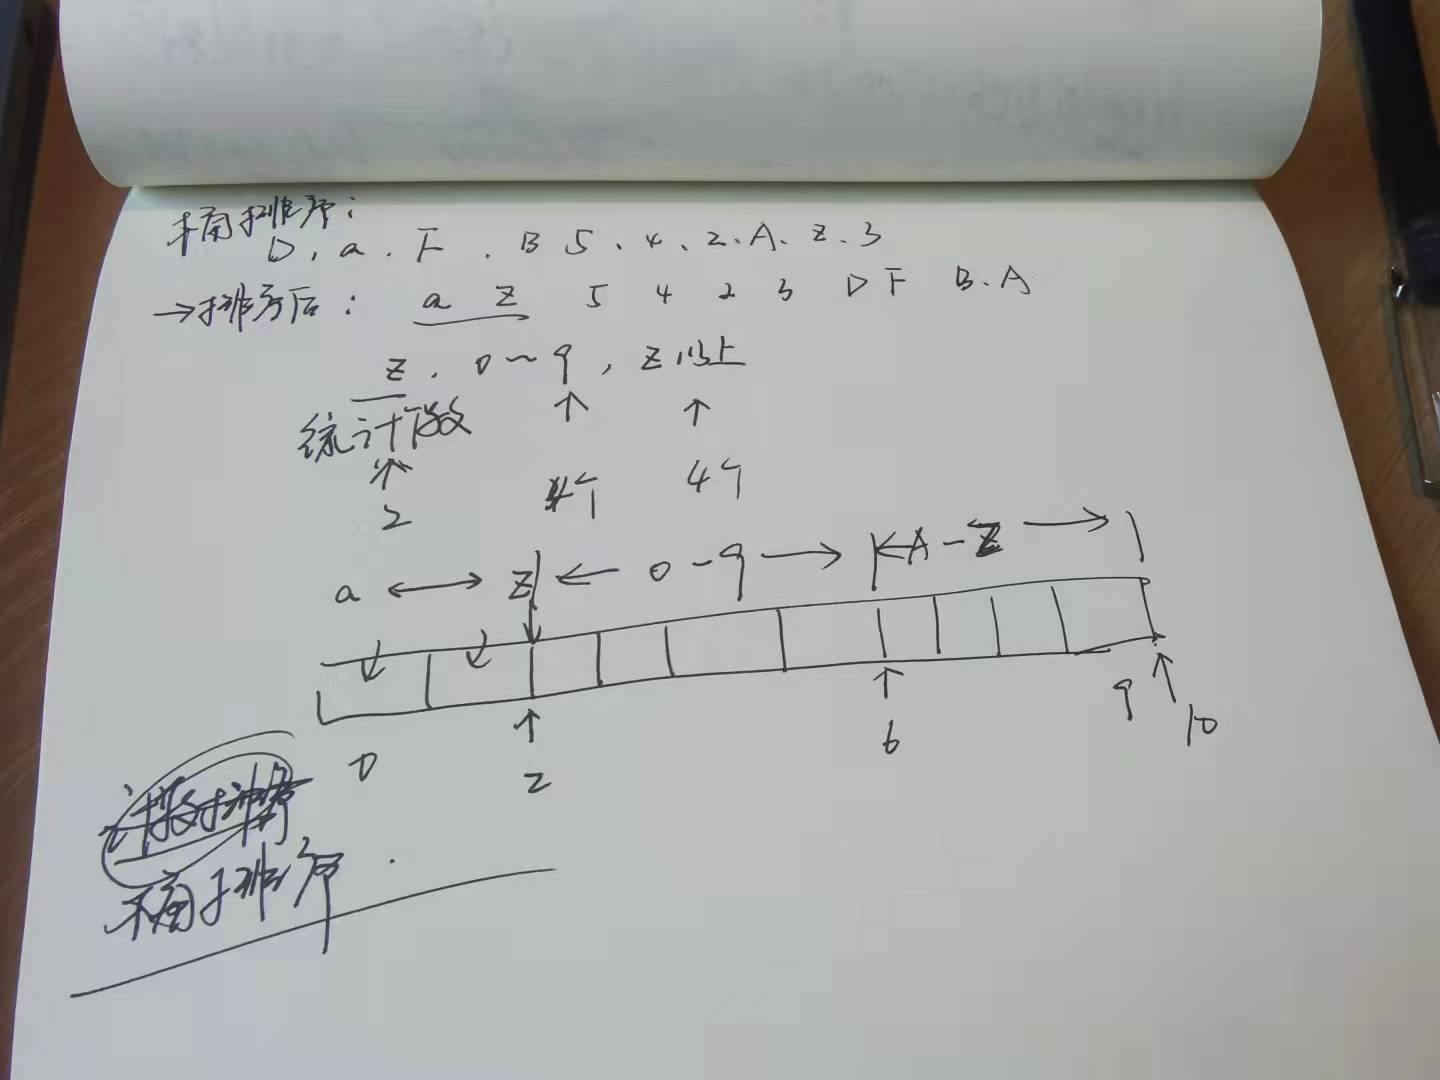 桶排序:
D, a. F. B 5、4、2、A、z、3
→排序后: a z 5 4 2 3 D F B.A
z. 0~9, Z以上
统计个数
2 4个 4个
a z 0-9 A-Z
0 2 6 9 10
计数排序
桶排序.